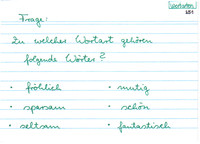 Wortarten
151
Frage:
Zu welcher Wortart gehören
folgende Wörter?
• fröhlich • mutig
• sparsam • schön
• seltsam • fantastisch